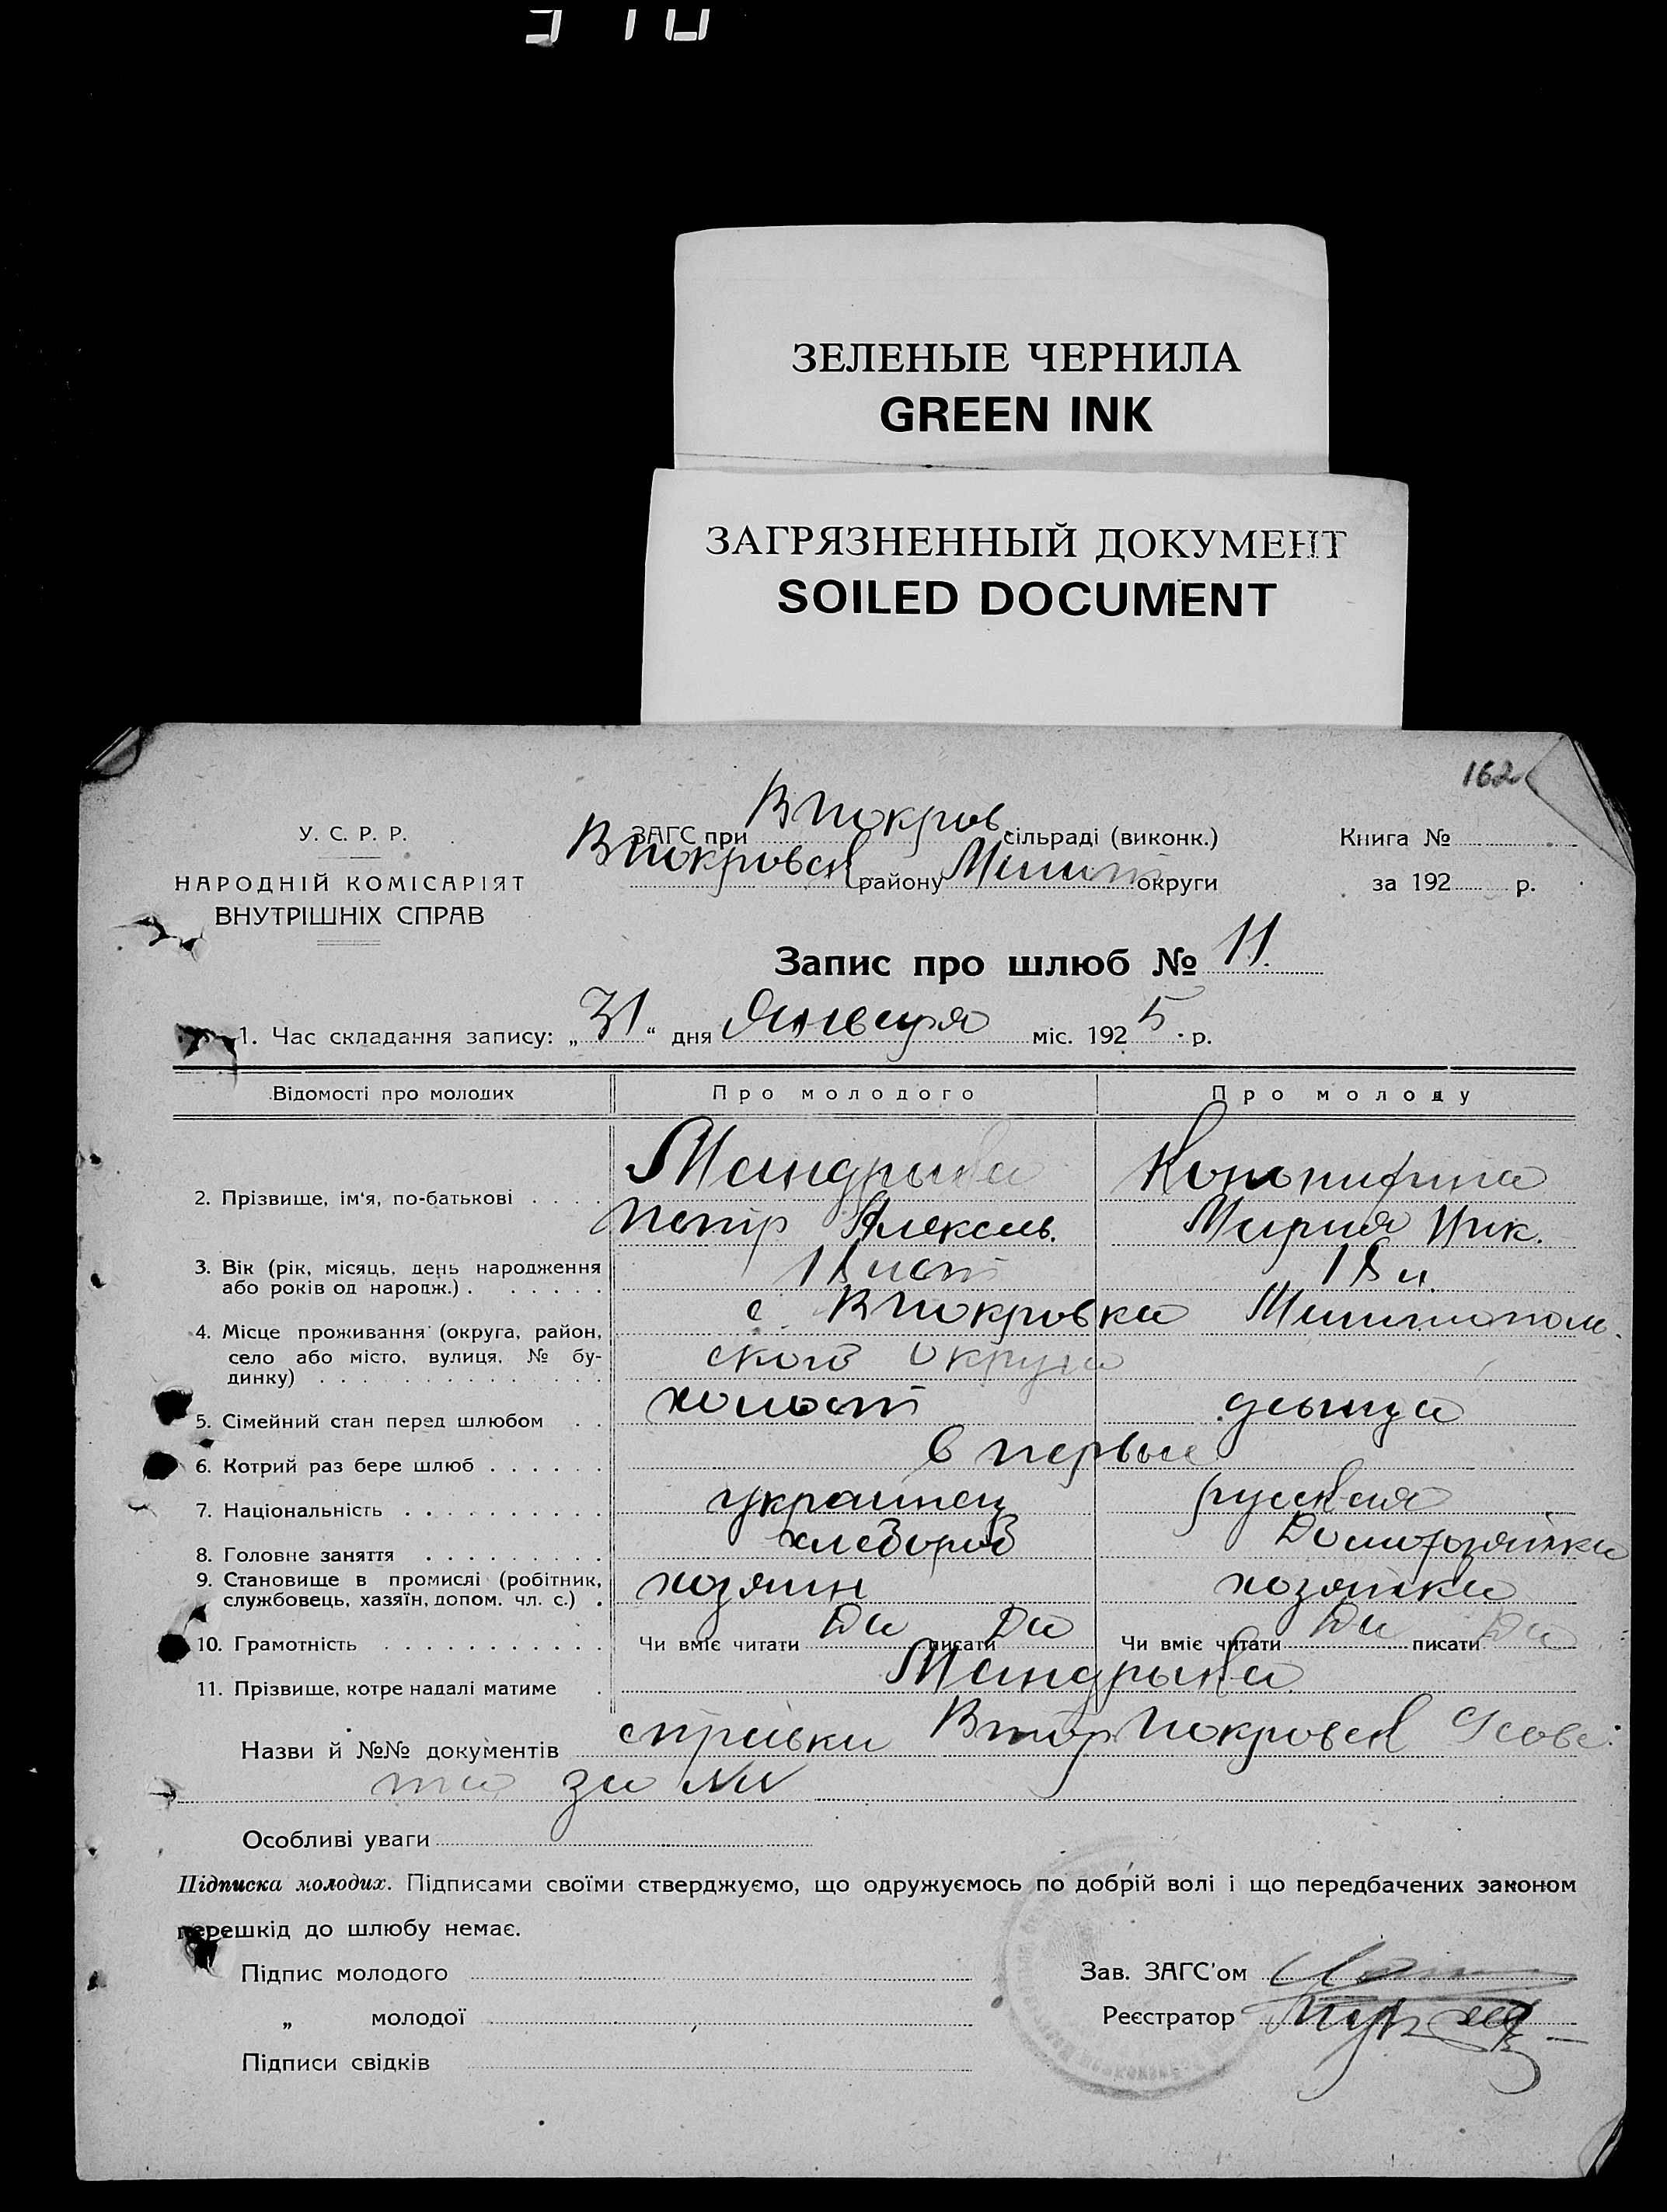 ЗЕЛЕНЫЕ ЧЕРНИЛА
GREEN INK
ЗАГРЯЗНЕННЫЙ ДОКУМЕНТ
SOILED DOCUMENT
162
У. С. Р. Р.
НАРОДНІЙ КОМІСАРІЯТ
ВНУТРІШНІХ СПРАВ
ЗАГС при В Покров. сільраді (виконк.)
В Покровск району Мелит округи
Книга №
за 192 р.
Запис про шлюб № 11.
1. Час складання запису: „31“ дня Января міс. 1925 р.
Відомості про молодих Про молодого Про молоду
2. Прізвище, ім'я, по-батькові Мандрыка
Петр Алексеев. Мария Ник.
3. Вік (рік, місяць, день народження або років од народж.) 18 лет 18 л.
4. Місце проживання (округа, район, село або місто, вулиця, № будинку) с. В Покровка Мелитополь-
ского округа
5. Сімейний стан перед шлюбом холост девица
6. Котрий раз бере шлюб в первые
7. Національність украинец русская
8. Головне заняття хлебороб Домохозяйка
9. Становище в промислі (робітник, службовець, хазяїн, допом. чл. с.) хозяин хозяйка
10. Грамотність Чи вміє читати Да писати Да Чи вміє читати Да писати Да
11. Прізвище, котре надалі матиме Мандрыка
Назви й №№ документів справки Втор Покровск Сове-
та за №№
Особливі уваги
Підписка молодих. Підписами своїми стверджуємо, що одружуємось по добрій волі і що передбачених законом
перешкід до шлюбу немає.
Підпис молодого
„ молодої
Підписи свідків
Зав. ЗАГС'ом
Реєстратор